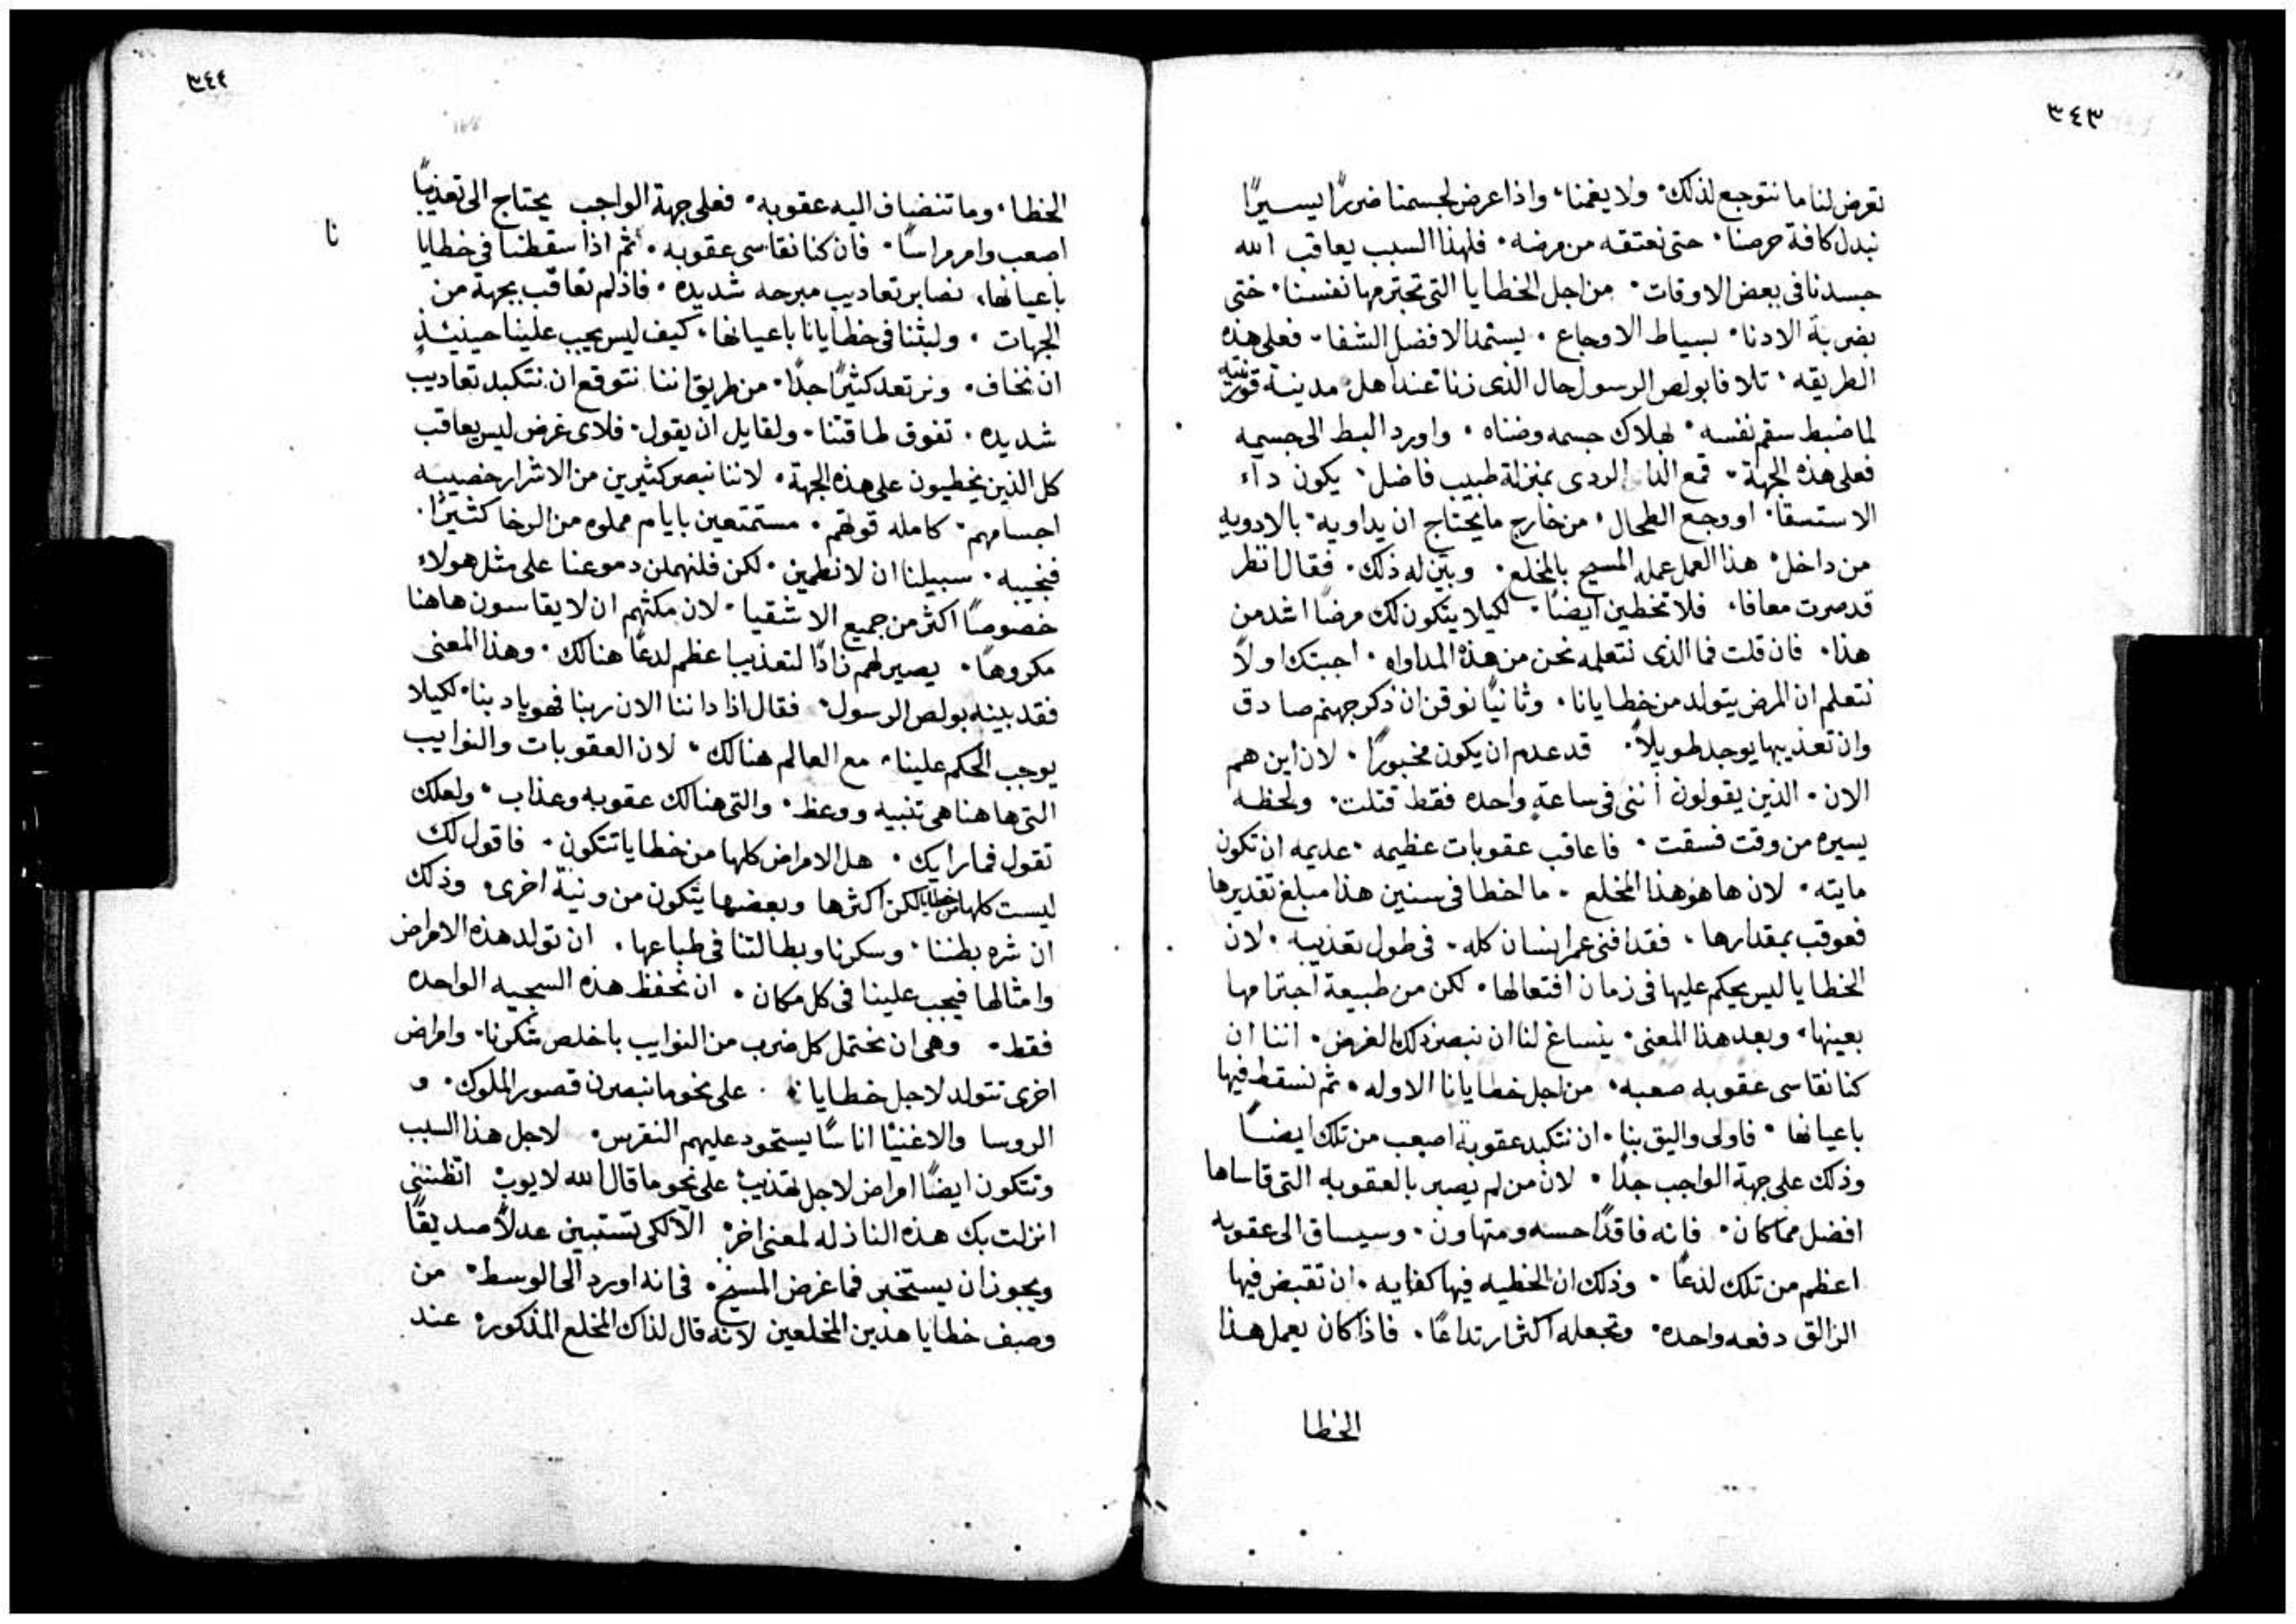 ٣٤٣
تعرض لنا ما نتوجع لذلك٠ ولا يغمنا٠ واذا عرض لجسمنا ضررًا يسيرًا
نبدل كافة حرصنا٠ حتى نعتقه من مرضه٠ فلهذا السبب يعاقب الله
جسدنا فى بعض الاوقات٠ من اجل الخطايا التى تجترمها نفسنا٠ ختى
بضربة الادنا٠ بسياط الاوجاع٠ يستمد الافضل الشفا٠ فعلى هذه
الطريقه٠ تلافا بولص الرسول حال الذى زنا عند اهل مدينة قورنتيه
لما ضبط سقم نفسه٠ بهلاك جسمه وضناه٠ واورد البط الى جسمه
فعلى هذه الجهة٠ قمع الدا الردى بمنزلة طبيب فاضل٠ يكون دآء
الاستسقا٠ او وجع الطحال٠ من خارج ما يحتاج ان يداويه٠ بالادويه
من داخل٠ هذا العمل عمله المسيح بالمخلع٠ وبين له ذلك٠ فقال انظر
قد صرت معافا٠ فلا تخطين ايضًا٠ لكيلا يتكون لك مرضًا اشد من
هذا٠ فان قلت فما الذى نتعلمه نحن من هذه المداواه٠ اجبتك اولاً
نتعلم ان المرض يتولد من خطايانا٠ وثانيًا نوقن ان ذكر جهنم صادق
وان تعذيبها يوجد طويلاً٠ قد عدم ان يكون مخبورًا٠ لان اين هم
الان٠ الذين يقولون أننى فى ساعةٍ واحده فقط قتلت٠ ولحظه
يسيره من وقت فسقت٠ فاعاقب عقوبات عظيمه٠ عديمه ان تكون
مايته٠ لان ها هو هذا المخلع٠ ما اخطا فى سنين هذا مبلغ تقديرها
فعوقب بمقدارها٠ فقد افنى عمر انسان كله٠ فى طول تعذيبه٠ لان
الخطايا ليس يحكم عليها فى زمان افتعالها٠ لكن من طبيعة اجترامها
بعينها٠ وبعد هذا المعنى٠ ينساغ لنا ان نبصر ذلك الغرض٠ اننا ان
كنا نقاسى عقوبه صعبه٠ من اجل خطايانا الاوله٠ ثم نسقط فيها
باعيانها٠ فاولى واليق بنا٠ ان نتكبد عقوبة اصعب من تلك ايضًا
وذلك على جهة الواجب جدًا٠ لان من لم يصير بالعقوبه التى قاساها
افضل مما كان٠ فانه فاقدًا حسه ومتهاون٠ وسيساق الى عقوبه
اعظم من تلك لذعًا٠ وذلك ان الخطيه فيها كفايه٠ ان تقبض فيها
الزالق دفعه واحده٠ وتجعله اكثر ارتداعًا٠ فاذا كان يعمل هذا
الخطا
٣٤٤
الخطا٠ وما تنضاف اليه عقوبه٠ فعلى جهة الواجب يحتاج الى تعذيبًا
نا
اصعب وامر مراسًا٠ فان كنا نقاسى عقوبه٠ ثم اذا سقطنا فى خطايا
باعيانها٠ نصابر تعاديب مبرحه شديده٠ فاذ لم نعاقب بجهة من
الجهات٠ ولبثنا فى خطايانا باعيانها٠ كيف ليس يجب علينا حينيئذٍ
ان نخاف٠ ونرتعد كثيرًا جدًا٠ من طريق اننا نتوقع ان نتكبد تعاديب
شديده٠ تفوق طاقتنا٠ ولقايل ان يقول٠ فلاى غرض ليس يعاقب
كل الذين يخطيون على هذه الجهة٠ لاننا نبصر كثيرين من الاشرار خصيبه
اجسامهم٠ كامله قوتهم٠ مستمتعين بايام مملوه من الرخا كثيرًا٠
فنجيبه٠ سبيلنا ان لا نطمين٠ لكن فلنهملن دموعنا على مثل هولاء
خصوصًا اكثر من جميع الاشقيا٠ لان مكثهم ان لا يقاسون هاهنا
مكروهًا٠ يصير لهم زادًا لتعذيب اعظم لدعًا هنالك٠ وهذا المعنى
فقد بينه بولص الرسول٠ فقال اذا داننا الان ربنا فهو يادبنا٠ لكيلا
يوجب الحكم علينا٠ مع العالم هنالك٠ لان العقوبات والنوايب
التى هاهنا هى تنبيه ووعظ٠ والتى هنالك عقوبه وعذاب٠ ولعلك
تقول فما رايك٠ هل الامراض كلها من خطايا تتكون٠ فاقول لك
ليست كلها من خطايا لكن اكثرها وبعضها يتكون من ونية اخرى٠ وذلك
ان شره بطننا٠ وسكرنا وبطالتنا فى طباعها٠ ان تولد هذه الامراض
وامثالها فيجب علينا فى كل مكان٠ ان نحفظ هذه السجيه الواحده
فقط٠ وهى ان نحتمل كل ضرب من النوايب باخلص شكرنا٠ وامراض
اخرى تتولد لاجل خطايانا٠ على نحو ما نبصر فى قصور الملوك٠ و
الروسا والاغنيا اناسًا يستحود عليهم النقرس٠ لاجل هذا السبب
وتتكون ايضًا امراض لاجل تهذيبنا على نحو ما قال الله لايوب٠ اتظننى
انزلت بك هذه النازله لمعنى اخر٠ الآ لكى تستبين عدلاً صديقًا
ويجوز ان يستخبر فما غرض المسيح٠ فى انه اورد الى الوسط٠ من
وصف خطايا هذين المخلعين لانه قال لذاك المخلع المذكور٠ عند